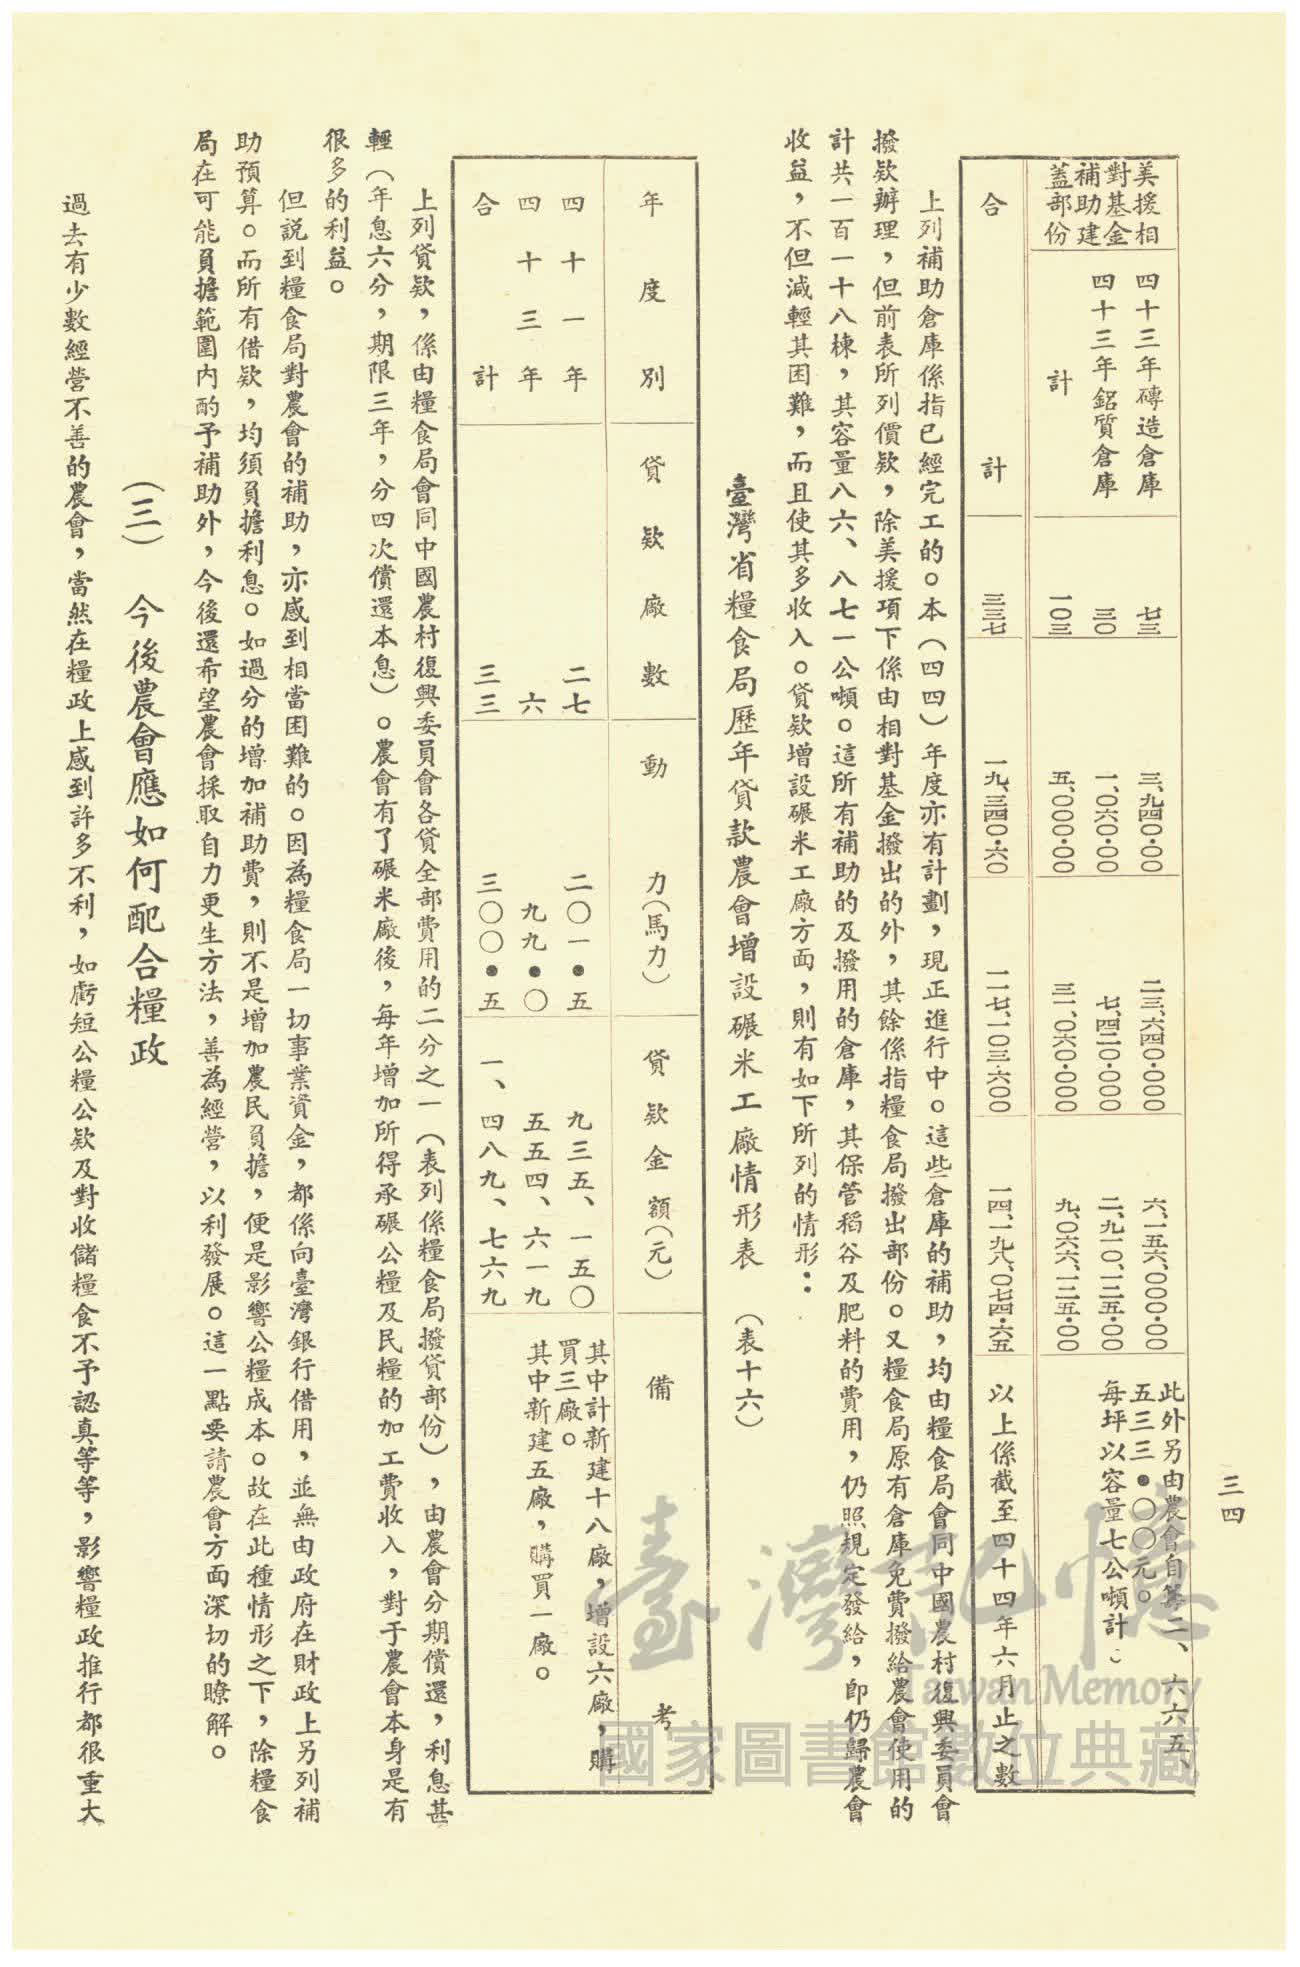 三四
美援相
對基金
補助建
蓋部份
四十三年磚造倉庫
七三
三、九四〇•〇〇
二三、六四〇•〇〇〇
六、一五六、〇〇〇•〇〇
此外另由農會自籌二、六六五、
五三三•〇〇元。
四十三年鋁質倉庫
三〇
一、〇六〇•〇〇
七、四二〇•〇〇〇
二、九一〇、一二五•〇〇
每坪以容量七公噸計。
計
一〇三
五、〇〇〇•〇〇
三一、〇六〇•〇〇〇
九、〇六六、一二五•〇〇
合計
三三七
一九、三四〇•六〇
一一七、一〇三•六〇〇
一四、一九八、〇七四•六五
以上係截至四十四年六月止之數
上列補助倉庫係指已經完工的。本（四四）年度亦有計劃，現正進行中。這些倉庫的補助，均由糧食局會同中國農村復興委員會
撥欵辦理，但前表所列價欵，除美援項下係由相對基金撥出的外，其餘係指糧食局撥出部份。又糧食局原有倉庫免費撥給農會使用的
計共一百一十八棟，其容量八六、八七一公噸。這所有補助的及撥用的倉庫，其保管稻谷及肥料的費用，仍照規定發給，即仍歸農會
收益，不但減輕其困難，而且使其多收入。貸欵增設碾米工廠方面，則有如下所列的情形：
臺灣省糧食局歷年貸款農會增設碾米工廠情形表　（表十六）
年度別
貸欵廠數
動力（馬力）
貸欵金額（元）
備考
四十一年
二七
二〇一•五
九三五、一五〇
其中計新建十八廠，增設六廠，購
買三廠。
四十三年
六
九九•〇
五五四、六一九
其中新建五廠，購買一廠。
合計
三三
三〇〇•五
一、四八九、七六九
上列貸欵，係由糧食局會同中國農村復興委員會各貸全部費用的二分之一（表列係糧食局撥貸部份），由農會分期償還，利息甚
輕（年息六分，期限三年，分四次償還本息）。農會有了碾米廠後，每年增加所得承碾公糧及民糧的加工費收入，對于農會本身是有
很多的利益。
但説到糧食局對農會的補助，亦感到相當困難的。因為糧食局一切事業資金，都係向臺灣銀行借用，並無由政府在財政上另列補
助預算。而所有借欵，均須負擔利息。如過分的增加補助費，則不是增加農民負擔，便是影響公糧成本。故在此種情形之下，除糧食
局在可能負擔範圍内酌予補助外，今後還希望農會採取自力更生方法，善為經營，以利發展。這一點要請農會方面深切的瞭解。
（三）　今後農會應如何配合糧政
過去有少數經營不善的農會，當然在糧政上感到許多不利，如虧短公糧公欵及對收儲糧食不予認真等等，影響糧政推行都很重大
臺灣記憶
Taiwan Memory
國家圖書館數位典藏